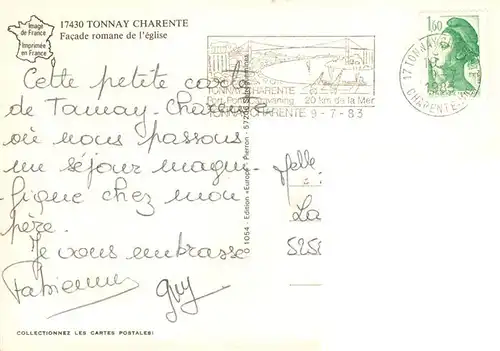 Image
de France
Imprimée
en France
17430 TONNAY CHARENTE
Façade romane de l'église
1,60
17 TONNAY
CHARENTE
TONNAY CHARENTE
20 km de la Mer
TONNAY CHARENTE 9-7-83
Cette petite carte
de Tonnay-Charente
où nous passons
un séjour magni-
fique chez mon
père.
Je vous embrasse
Fabienne
Guy
Melle
La
525
1054 - Edition «Europ» Pierron - 572
COLLECTIONNEZ LES CARTES POSTALES!